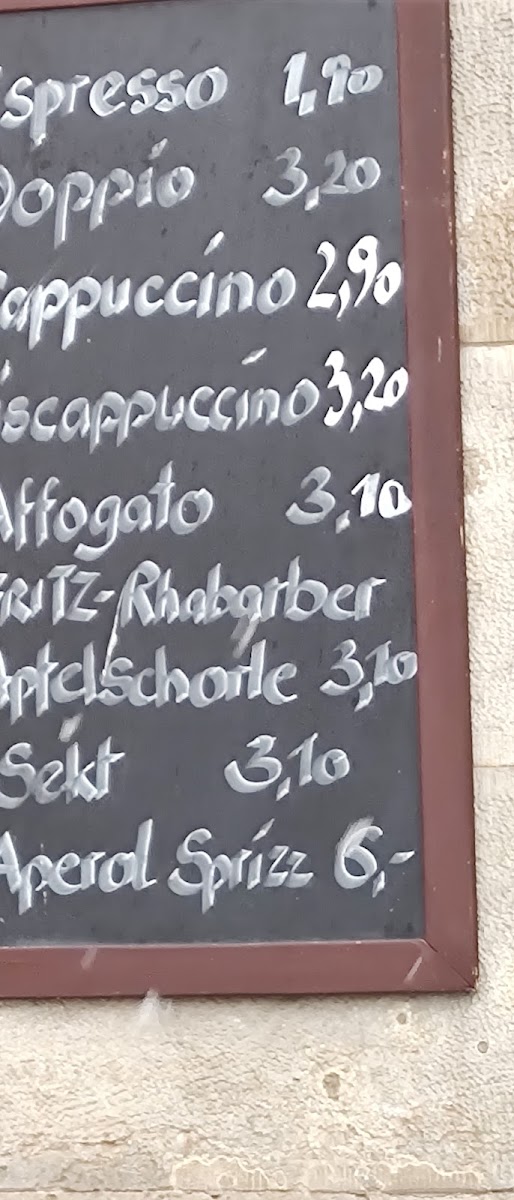 Espresso 1,90
Doppio 3,20
Cappuccino 2,90
Eiscappuccino 3,20
Affogato 3,10
FRITZ-Rhabarber
Apfelschorle 3,10
Sekt 3,10
Aperol Sprizz 6,-